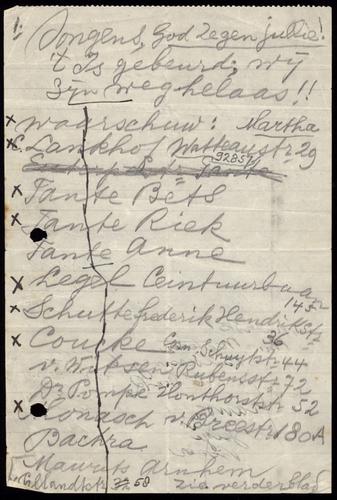 1.
Jongens, God zegen jullie!
't Is gebeurd, wij
zijn weg helaas!!
x waarschuw: Martha
x Lankhof Watteaustr 29
92857
x Tante Bets
x Tante Riek
Tante Anne
x Legel Ceintuurbaan
145
x Schutte Frederik Hendrikstr
36
x Coucke Corn. Schuytstr 44
Rubensstr 72
Dr Pompe Honthorststr 52
x v. Breestr 180A
Bachra
Mauvits Arnhem
58 zie verder blad